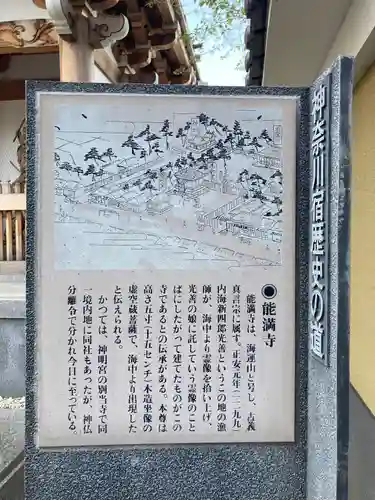 神奈川宿歴史の道
◉能満寺
能満寺は、海運山と号し、古義
真言宗に属す。正安元年（一二九九）
内海新四郎光善というこの地の漁
師が、海中より霊像を拾い上げ、
光善の娘に託していう霊像のこと
ばにしたがって建てたものがこの
寺であるとの伝承がある。本尊は
高さ五寸（十五センチ）木造坐像の
虚空蔵菩薩で、海中より出現した
と伝えられる。
かつては、神明宮の別当寺で同
一境内地に同社もあったが、神仏
分離令で分かれ今日に至っている。